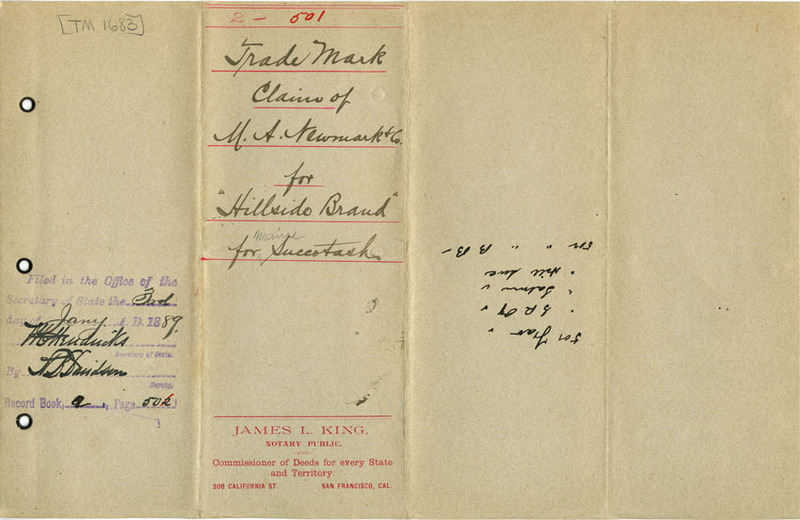 [TM 1683]
Filed in the Office of the
Secretary of State the 3rd
day of Jany A.D. 1889.
W C Hendricks
Secretary of State.
By
Davidson
Deputy.
Record Book, a, Page 502
2 - 501
Trade Mark
Claim of
M. A. Newmark & Co.
for
"Hillside Brand"
for Maine Succotash
JAMES L. KING,
NOTARY PUBLIC,
AND
Commissioner of Deeds for every State
and Territory.
308 CALIFORNIA ST. SAN FRANCISCO, CAL.
501